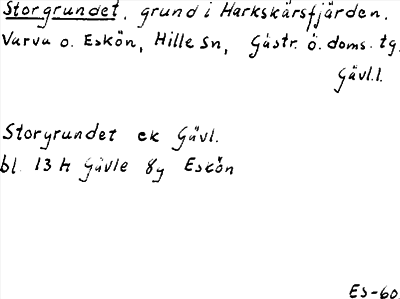 Storgrundet, grund i Harkskärsfjärden.
Varva o. Eskön, Hille sn, Gästr. ö. doms. tg.
Gävl.l.
Storgrundet ek Gävl.
bl. 13 H Gävle 8g Eskön
ES-60